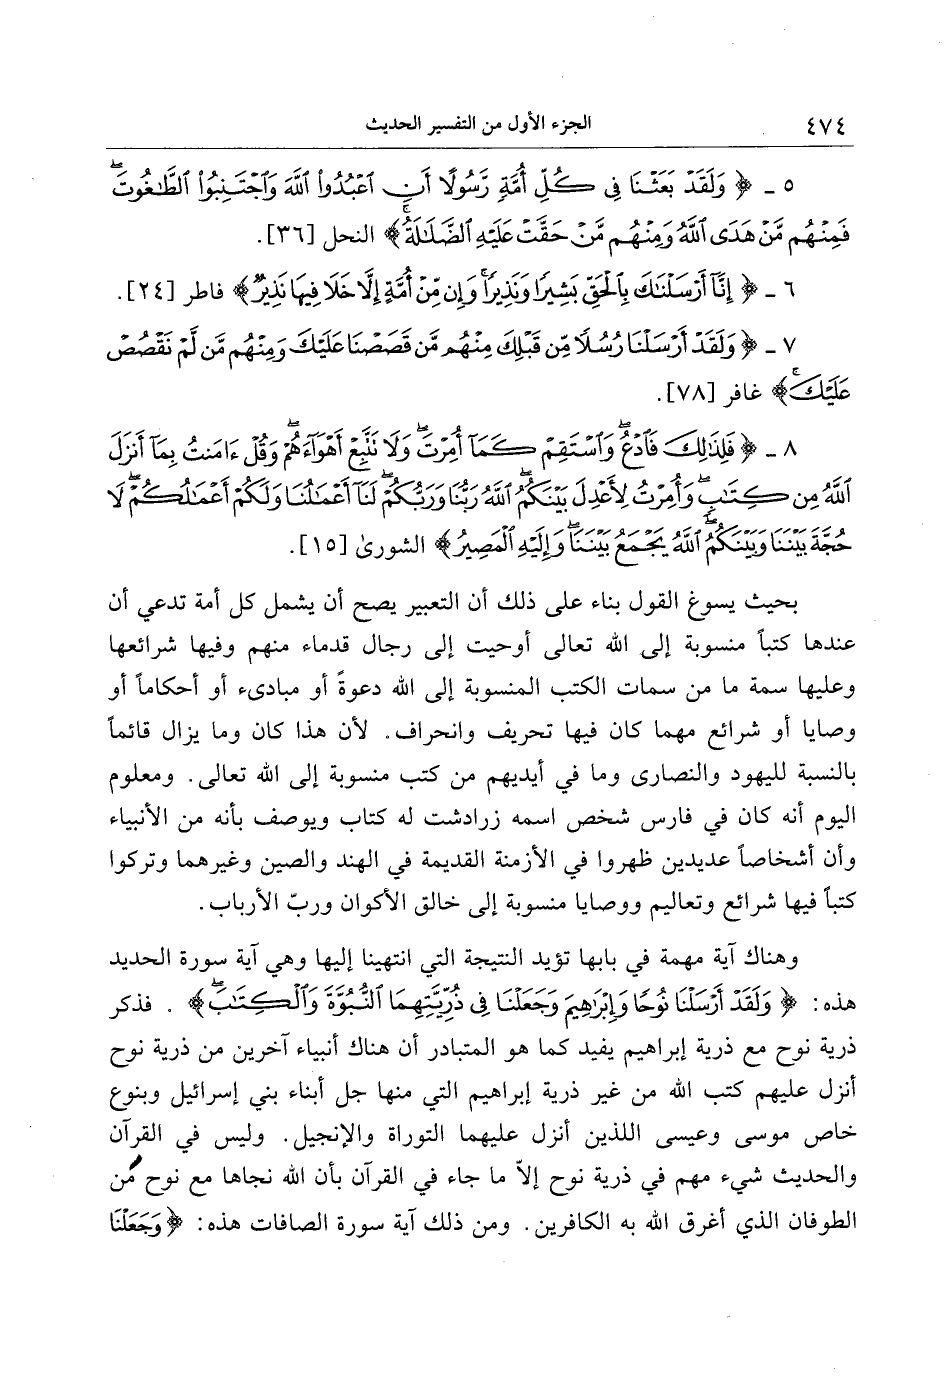 ٤٧٤ الجزء الأول من التفسير الحديث
٥ ـ ﴿ وَلَقَدْ بَعَثْنَا فِي كُلِّ أُمَّةٍ رَّسُولًا أَنِ اعْبُدُوا اللَّهَ وَاجْتَنِبُوا الطَّاغُوتَ ۖ
فَمِنْهُم مَّنْ هَدَى اللَّهُ وَمِنْهُم مَّنْ حَقَّتْ عَلَيْهِ الضَّلَالَةُ ۚ ﴾ النحل [٣٦].
٦ ـ ﴿ إِنَّا أَرْسَلْنَاكَ بِالْحَقِّ بَشِيرًا وَنَذِيرًا ۚ وَإِن مِّنْ أُمَّةٍ إِلَّا خَلَا فِيهَا نَذِيرٌ ﴾ فاطر [٢٤].
٧ ـ ﴿ وَلَقَدْ أَرْسَلْنَا رُسُلًا مِّن قَبْلِكَ مِنْهُم مَّن قَصَصْنَا عَلَيْكَ وَمِنْهُم مَّن لَّمْ نَقْصُصْ
عَلَيْكَ ۚ ﴾ غافر [٧٨].
٨ ـ ﴿ فَلِذَٰلِكَ فَادْعُ ۖ وَاسْتَقِمْ كَمَا أُمِرْتَ ۖ وَلَا تَتَّبِعْ أَهْوَاءَهُمْ ۖ وَقُلْ ءَامَنتُ بِمَا أَنزَلَ
اللَّهُ مِن كِتَابٍ ۖ وَأُمِرْتُ لِأَعْدِلَ بَيْنَكُمُ ۖ اللَّهُ رَبُّنَا وَرَبُّكُمْ ۖ لَنَا أَعْمَالُنَا وَلَكُمْ أَعْمَالُكُمْ ۖ لَا
حُجَّةَ بَيْنَنَا وَبَيْنَكُمُ ۖ اللَّهُ يَجْمَعُ بَيْنَنَا ۖ وَإِلَيْهِ الْمَصِيرُ ﴾ الشورىٰ [١٥].
بحيث يسوغ القول بناء على ذلك أن التعبير يصح أن يشمل كل أمة تدعي أن
عندها كتباً منسوبة إلى الله تعالى أوحيت إلى رجال قدماء منهم وفيها شرائعها
وعليها سمة ما من سمات الكتب المنسوبة إلى الله دعوةً أو مبادىء أو أحكاماً أو
وصايا أو شرائع مهما كان فيها تحريف وانحراف. لأن هذا كان وما يزال قائماً
بالنسبة لليهود والنصارى وما في أيديهم من كتب منسوبة إلى الله تعالى. ومعلوم
اليوم أنه كان في فارس شخص اسمه زرادشت له كتاب ويوصف بأنه من الأنبياء
وأن أشخاصاً عديدين ظهروا في الأزمنة القديمة في الهند والصين وغيرهما وتركوا
كتباً فيها شرائع وتعاليم ووصايا منسوبة إلى خالق الأكوان وربّ الأرباب.
وهناك آية مهمة في بابها تؤيد النتيجة التي انتهينا إليها وهي آية سورة الحديد
هذه: ﴿ وَلَقَدْ أَرْسَلْنَا نُوحًا وَإِبْرَاهِيمَ وَجَعَلْنَا فِي ذُرِّيَّتِهِمَا النُّبُوَّةَ وَالْكِتَابَ ۖ ﴾ . فذكر
ذرية نوح مع ذرية إبراهيم يفيد كما هو المتبادر أن هناك أنبياء آخرين من ذرية نوح
أنزل عليهم كتب الله من غير ذرية إبراهيم التي منها جل أبناء بني إسرائيل وبنوع
خاص موسى وعيسى اللذين أنزل عليهما التوراة والإنجيل. وليس في القرآن
والحديث شيء مهم في ذرية نوح إلاّ ما جاء في القرآن بأن الله نجاها مع نوح من
الطوفان الذي أغرق الله به الكافرين. ومن ذلك آية سورة الصافات هذه: ﴿ وَجَعَلْنَا